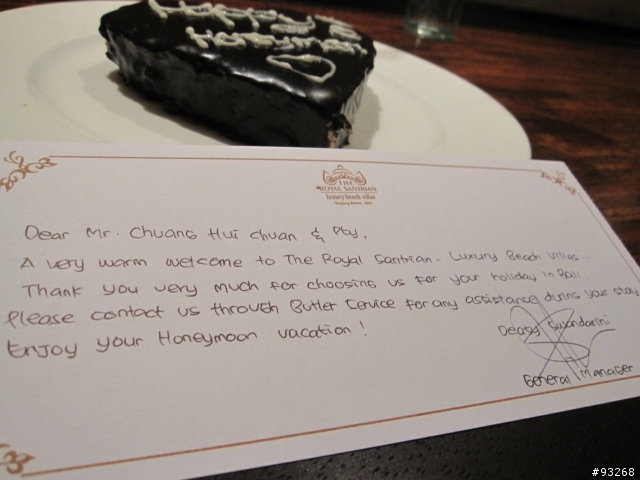 THE
ROYAL SANTRIAN
luxury beach villas
Dear Mr. Chuang Hui chuan & Pty,
A very warm welcome to The Royal Santrian - Luxury Beach Villas
Thank you very much for choosing us for your holiday in Bali.
Please contact us through Butler Service for any assistance during your stay
Enjoy your Honeymoon vacation!
Deasy Swandarini
General Manager
#93268